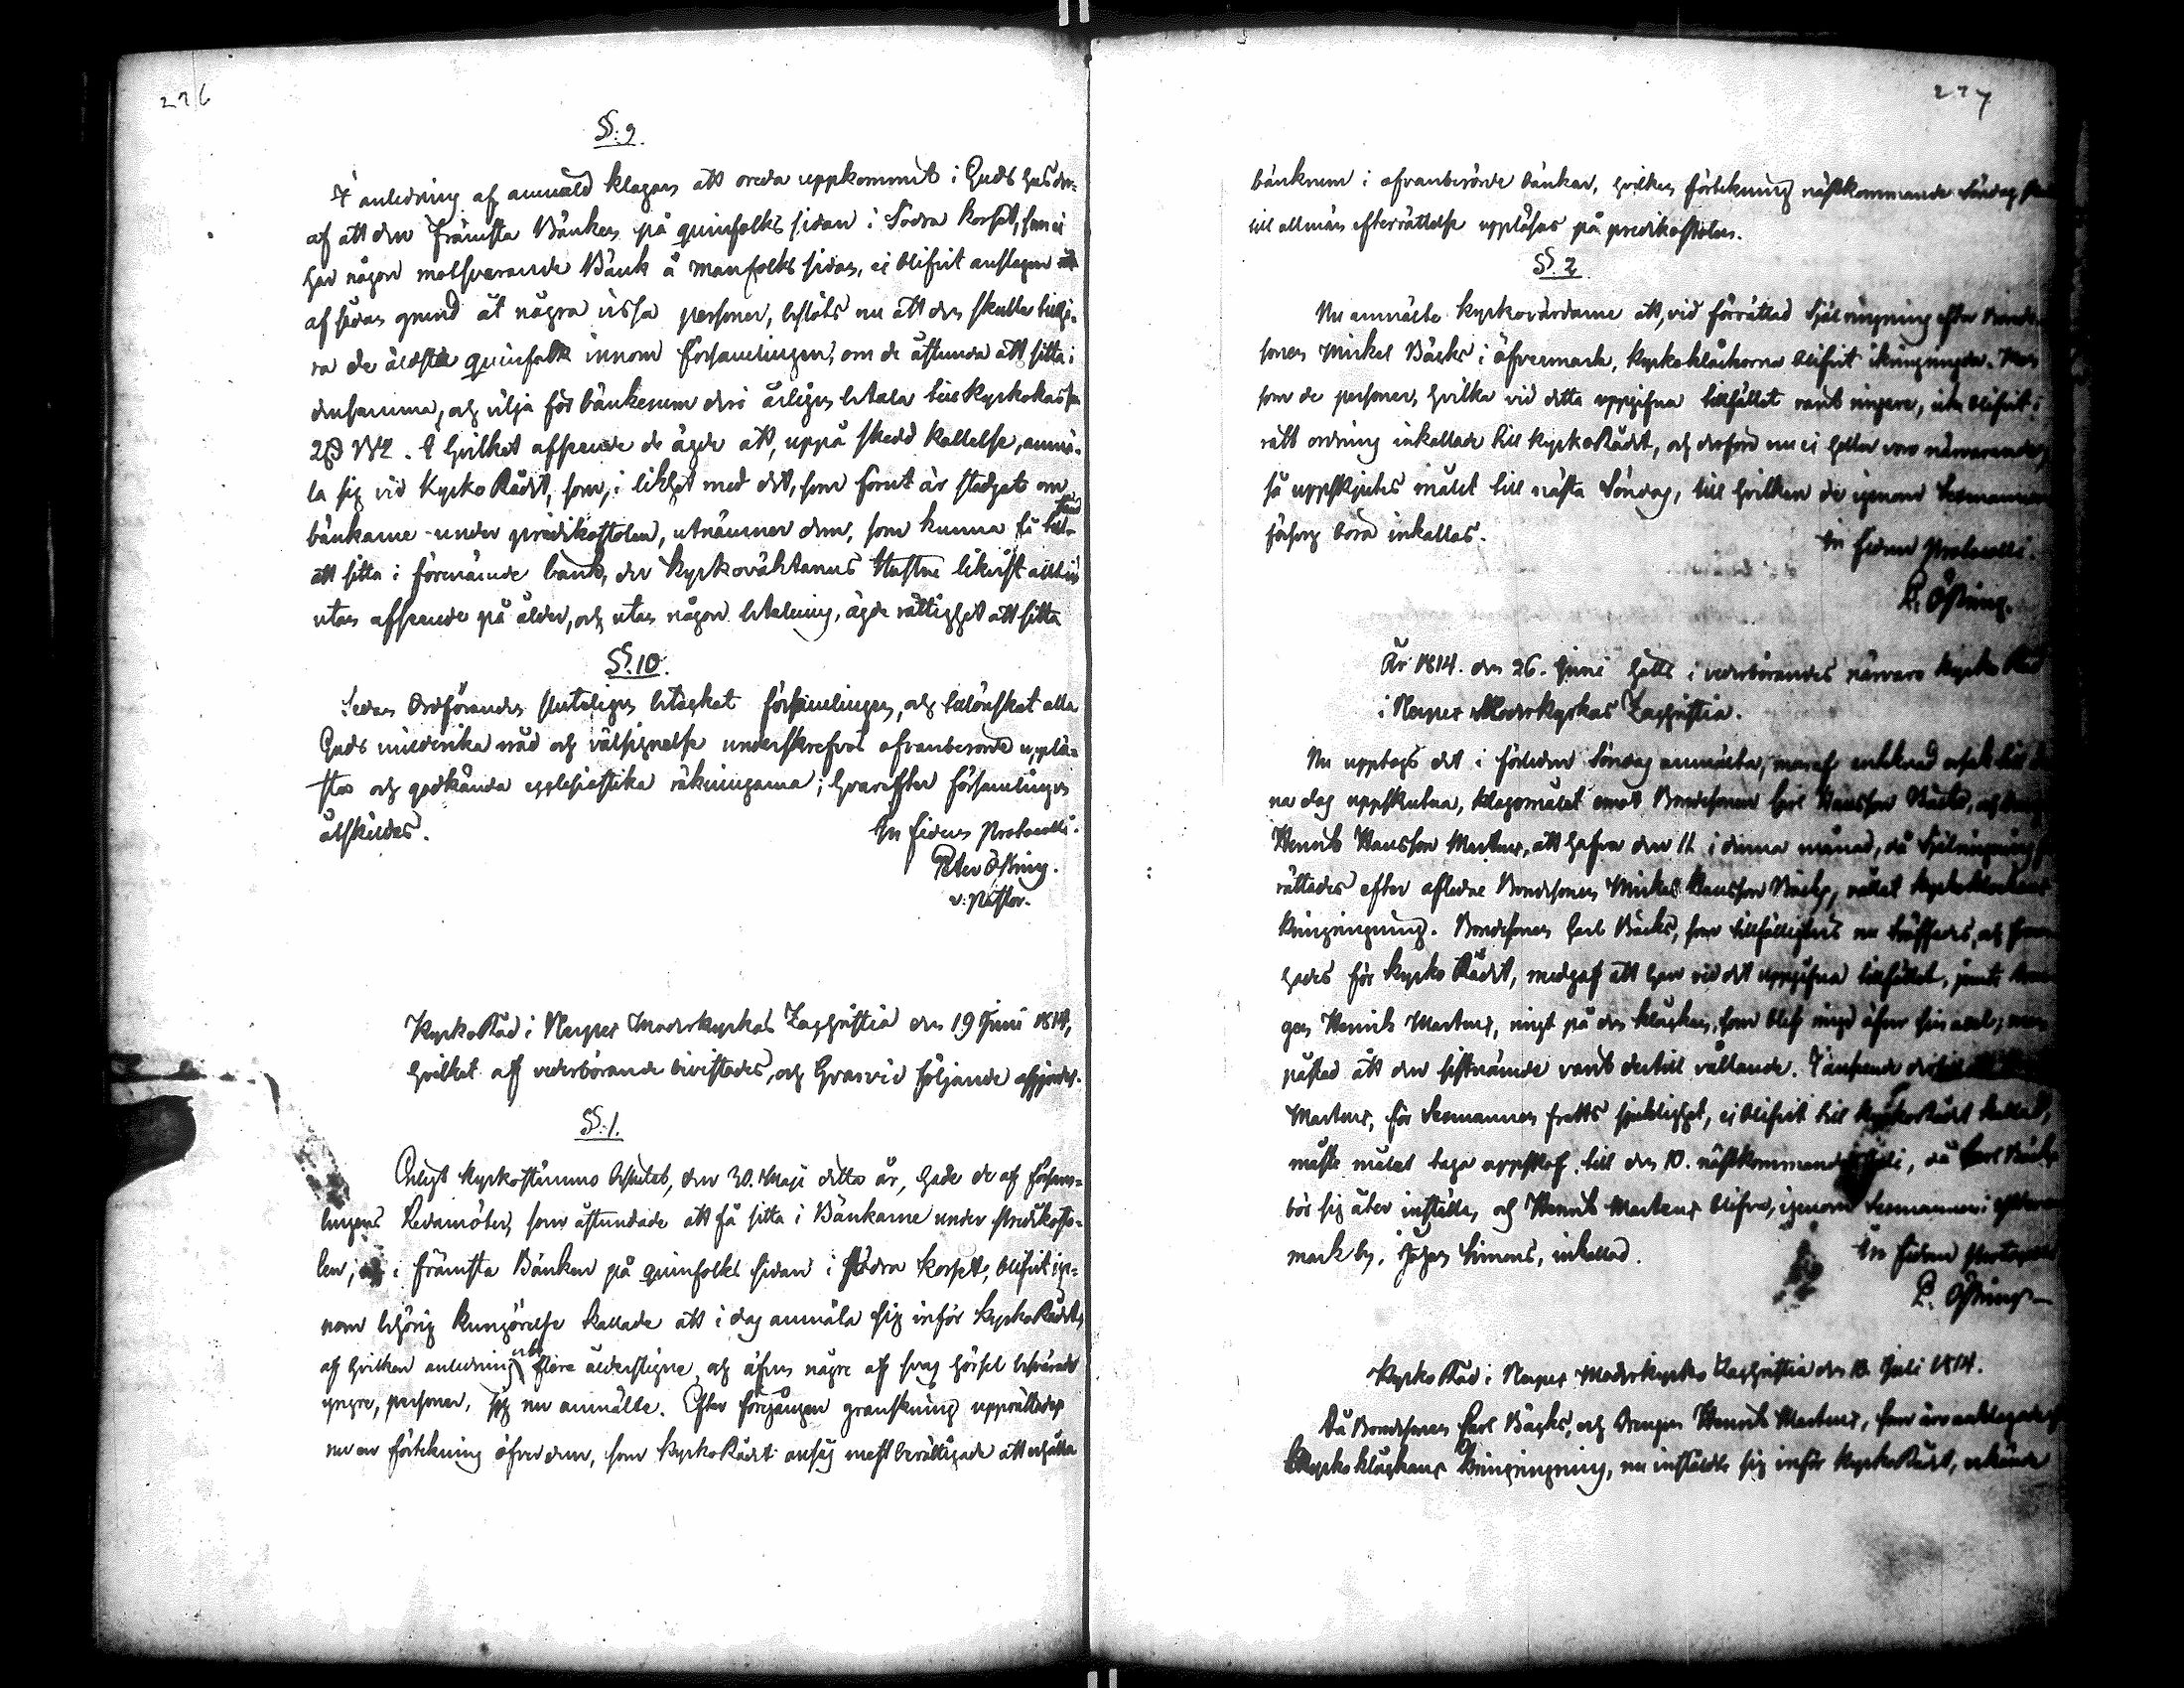 226
§. 9.
I anledning af anmäld klagan att oreda uppkommit i Guds hus der-
af att den främsta Bänken på quinfolks sidan i Södra Korset, som ei
har någon motsvarande Bänk å manfolks sidan, ei blifvit anslagen
af sedan grund åt några vissa personer, beslöts nu att den skulle tillhö-
ra de äldsta quinfolk innom Församlingen, om de åstunda att sitta i
densamma, och vilja för bänkerum deri årligen betala till Kyrkokassan
. I hvilket afseende de ägde att, uppå skedd kallelse, anmä-
la sig vid KyrkoRådet, som, i likhet med det, som förut är stadgat om
bänkarne under predikostolen, utnämner dem, som kunna få tillstånd
att sitta i förenämde bänk, der Kyrkovähtarens Hustru likväl alltid
utan afseende på ålder, och utan någon betalning, ägde rättighet att sitta
§. 10.
Sedan Ordföranden slutligen betackat Församlingen, och tillönskat alla
Guds milderika nåd och välsignelse underskrefvos ofvanberörde upplä-
sta och godkända ecclesiastika räkningarna; hvarefter Församlingen
åtskildes.
In fidem Protocolli.
Peter Östring.
v. Pastor.
KyrkoRåd i Nerpes Moderkyrkas Zachristia den 19 Juni 1814,
hvilket af vederbörande bivistades, och hvarvid följande afgjordes.
§. 1.
Enligt Kyrkostämmo beslutet, den 30. Maji detta år, hade de af Försam-
lingens Ledamöter, som åstundade att få sitta i Bänkarne under Predikosto-
len, i främsta Bänken på quinfolks sidan i Södra Korset, blifvit ige-
nom behörig kungörelse kallade att i dag anmäla sig inför KyrkoRådet,
af hvilken anledning flere ålderstigne, och äfven några af svag hörsel besvärade
yngre, personer, sig nu anmälte. Efter förgången granskning upprättades
nu en förtekning öfver dem, som KyrkoRådet ansåg mest berättigade att erhålla
227
bänkrum i ofvanberörde bänkar, hvilken förtekning nästkommande Söndag
till allmän efterrättelse uppläses på predikostolen.
§. 2.
Nu anmälte Kyrkovärdarne att, vid förrättad Själringning efter Bonde-
sonen Mickel Bäcks i Öfvermark, Kyrkoklåckorna blifvit ikringringda. Men
som de personer, hvilka vid detta uppgifna tillfället varit ringare, icke blifvit i
rätt ordning inkallade till KyrkoRådet, och derföre nu ei heller voro närvarande,
så uppskjutes målet till nästa Söndag, till hvilken de igenom Sexmannens
försorg böra inkallas.
In fidem Protocolli.
P. Östring.
År 1814. den 26. Juni hölls i vederbörandes närvaro Kyrko Råd
i Nerpes Moderkyrkas Zachristia.
Nu upptogs det i förleden Söndag anmälta, men af
na dag uppskutna, klagomålet emot Bondesonen Carl Hansson Bäcks, och
Henrik Hansson Martens, att hafva den 11 i denna månad, då Själringning
rättades efter afledne Bondesonen Mickel Hansson Bäcks, vållat Kyrkoklockans
kringringning. Bondesonen Carl Bäcks, som tillfälligtvis nu träffades, och
hades för Kyrko Rådet, medgaf att han vid det uppgifna tillfället, jemte
gen Henrik Martens, ringt på den klåckan, som blef ringd öfver sin axel, men
påstod att den sistnämde varit dertill vållande. I anseende
Martens, för Sexmannen Fretts sjuklighet, ei blifvit till KyrkoRådet kallad,
måste målet taga uppskof till den 10. nästkommande Juli, då Carl Bäcks
bör sig åter inställa, och Henrik Martens blifva, igenom Sexmannen i Öfver-
mark by, Johan Simons, inkallad.
In fidem Protocolli
P. Östring
Kyrko Råd i Nerpes Moderkyrko Zachristia den 10. Juli 1814.
Då Bondesonen Carl Bäcks, och Drengen Henrik Martens, som äro anklagade
Kyrkoklåckans kringringning, nu inställde sig inför KyrkoRådet, erkände